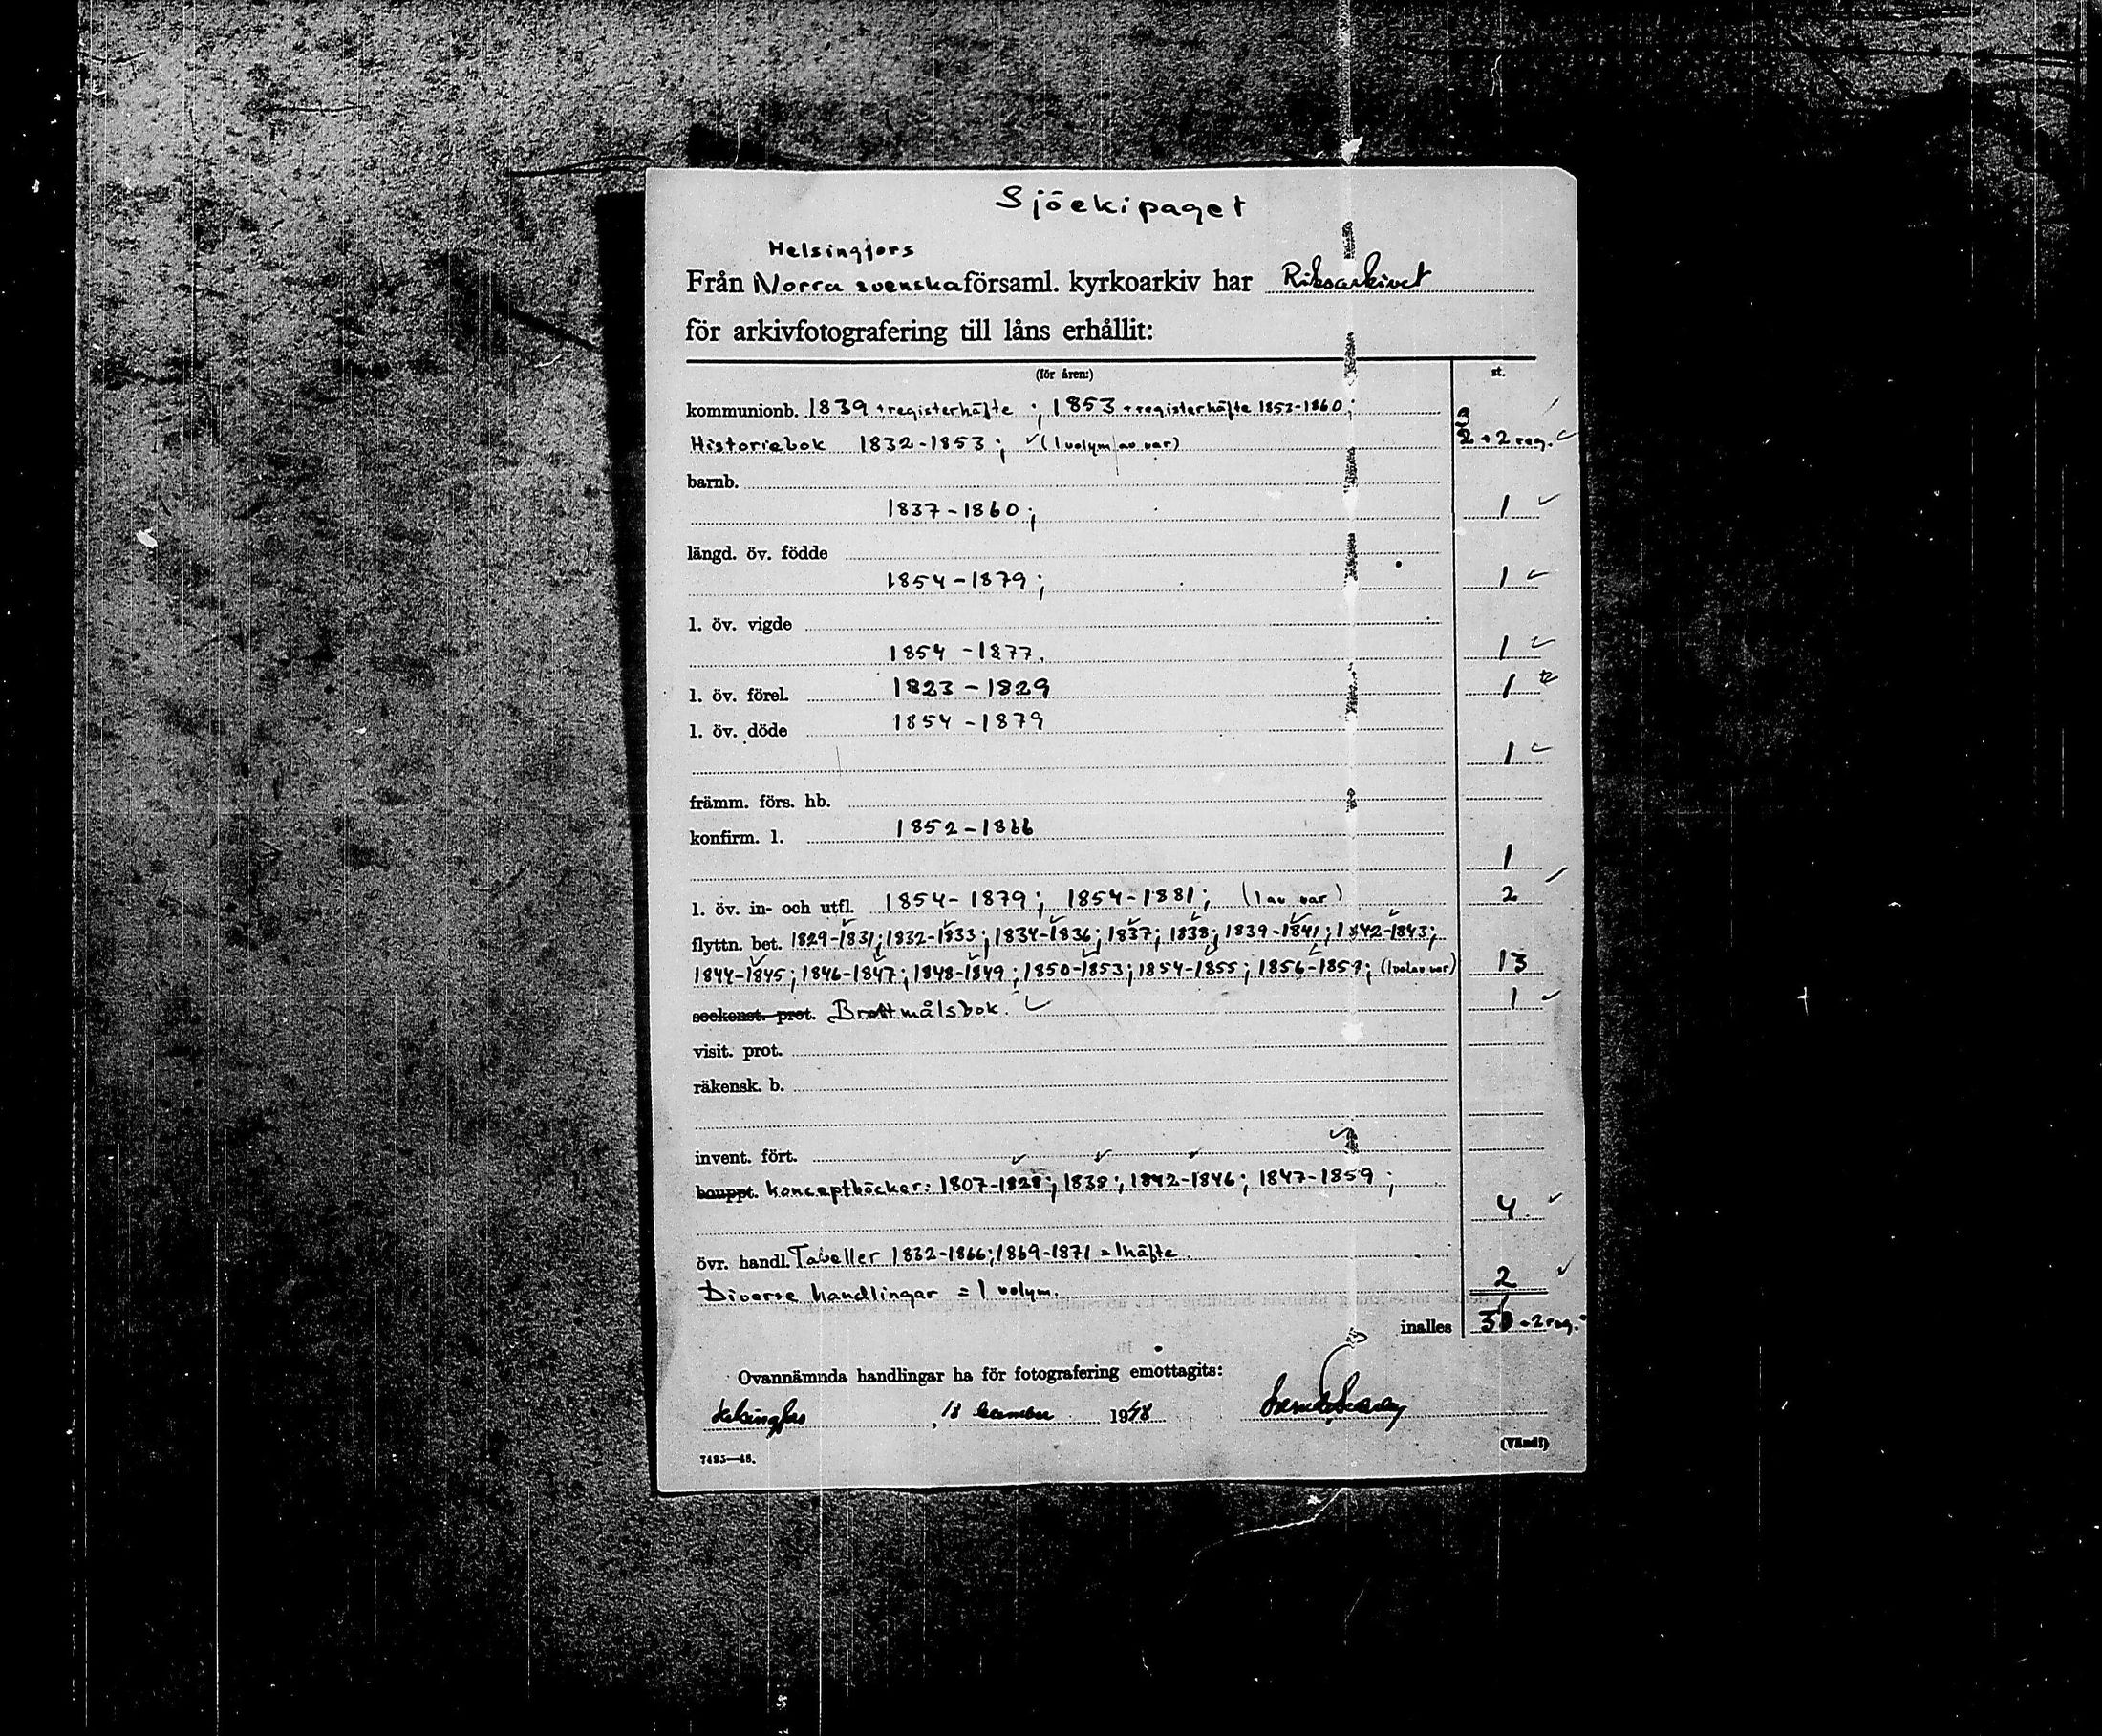 Sjöekipaget
Helsingfors
Från Norra svenska församl. kyrkoarkiv har Riksarkivet
för arkivfotografering till låns erhållit:
(för åren:) st.
kommunionb. 1839 + registerhäfte ; 1853 + registerhäfte 1852-1860; 3
Historiebok 1832-1853; (1 volym av var) 2 + 2 reg.
barnb.
1837-1860; 1
längd. öv. födde
1854-1879; 1
l. öv. vigde
1854-1877. 1
l. öv. förel. 1823-1829 1
l. öv. döde 1854-1879
1
främm. förs. hb.
konfirm. l. 1852-1866
1
l. öv. in- och utfl. 1854-1879; 1854-1881; (1 av var) 2
flyttn. bet. 1829-1831; 1832-1833; 1834-1836; 1837; 1838; 1839-1841; 1842-1843;
1844-1845; 1846-1847; 1848-1849; 1850-1853; 1854-1855; 1856-1859; (1 vol av var) 13
sockenst. prot. Brottmålsbok. 1
visit. prot.
räkensk. b.
invent. fört.
bouppt. Konceptböcker: 1807-1828; 1838; 1842-1846; 1847-1859;
4
övr. handl. Tabeller 1832-1866; 1869-1871 = 1 häfte.
Diverse handlingar = 1 volym. 2
inalles + 2 reg.
Ovannämnda handlingar ha för fotografering emottagits:
Helsingfors, 18 1948
(Vänd!)
7495—48.